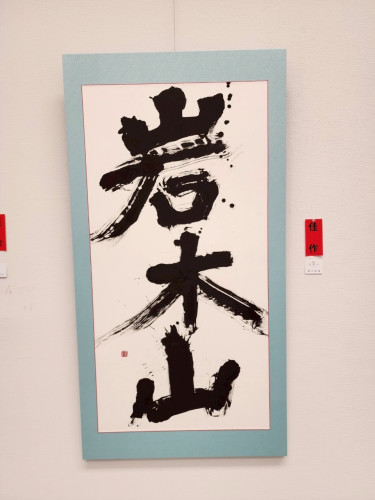 岩木山
佳作